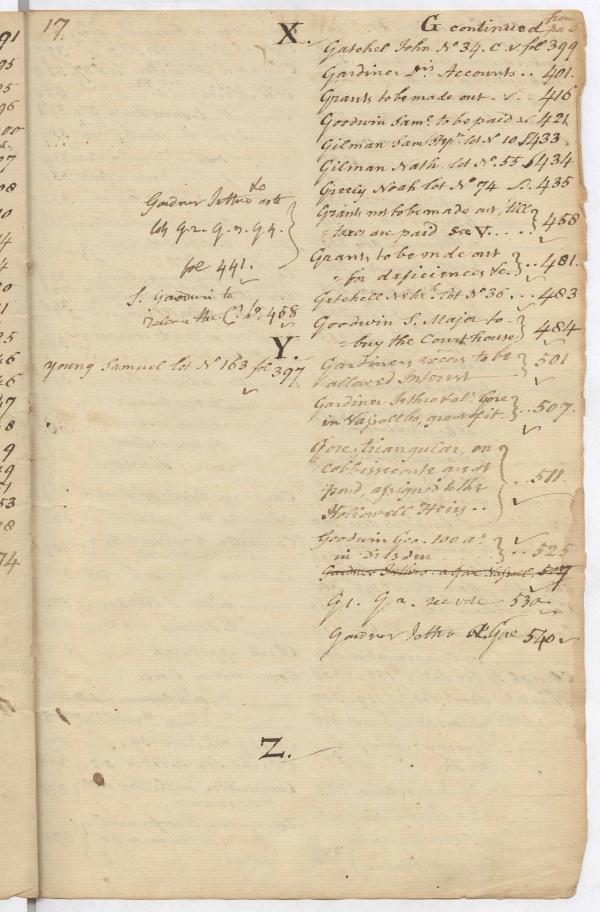 17.
X.
G continued from
pa 5
Gatchel John No 34. C. v fol 399
Gardiner Drs Accounts .. 401.
Grants to be made out .. 416
Goodwin Saml. to be paid 421
Gilman Sam lot N 10 433
Gilman Nath. lot No. 55. 434
Greely Noah lot No 74 .. 435
Grants not to be made out, till
taxes are paid see V. .... 458
Grants to be made out
for deficiences &c. .. 481.
Getchell lot No 36 ... 483
Goodwin S. Major to
buy the Court house 484
Gardiners to be
allowed Interest 501
Gardiner Jethro Gore
in Vassalbo, grant of it .. 507.
Gore, triangular, on
Cobbisseconte
pond, assigned to the
Hallowell Heirs .. 511.
Goodwin Geo. 100 as
in Dresden .. 525
Gardner Jethro a Gore Vassal. 507
G1. G2. see vote 530
Gardner Jethro Gore 540
Gardner Jethro &c
lots G. 2. G. 3. G 4.
fol 441.
S. Goodwin to
the Ct. ho. 458
Y.
Young Samuel lot No 163 fol 397
Z.
91
95
95
96
00
97
98
74
53